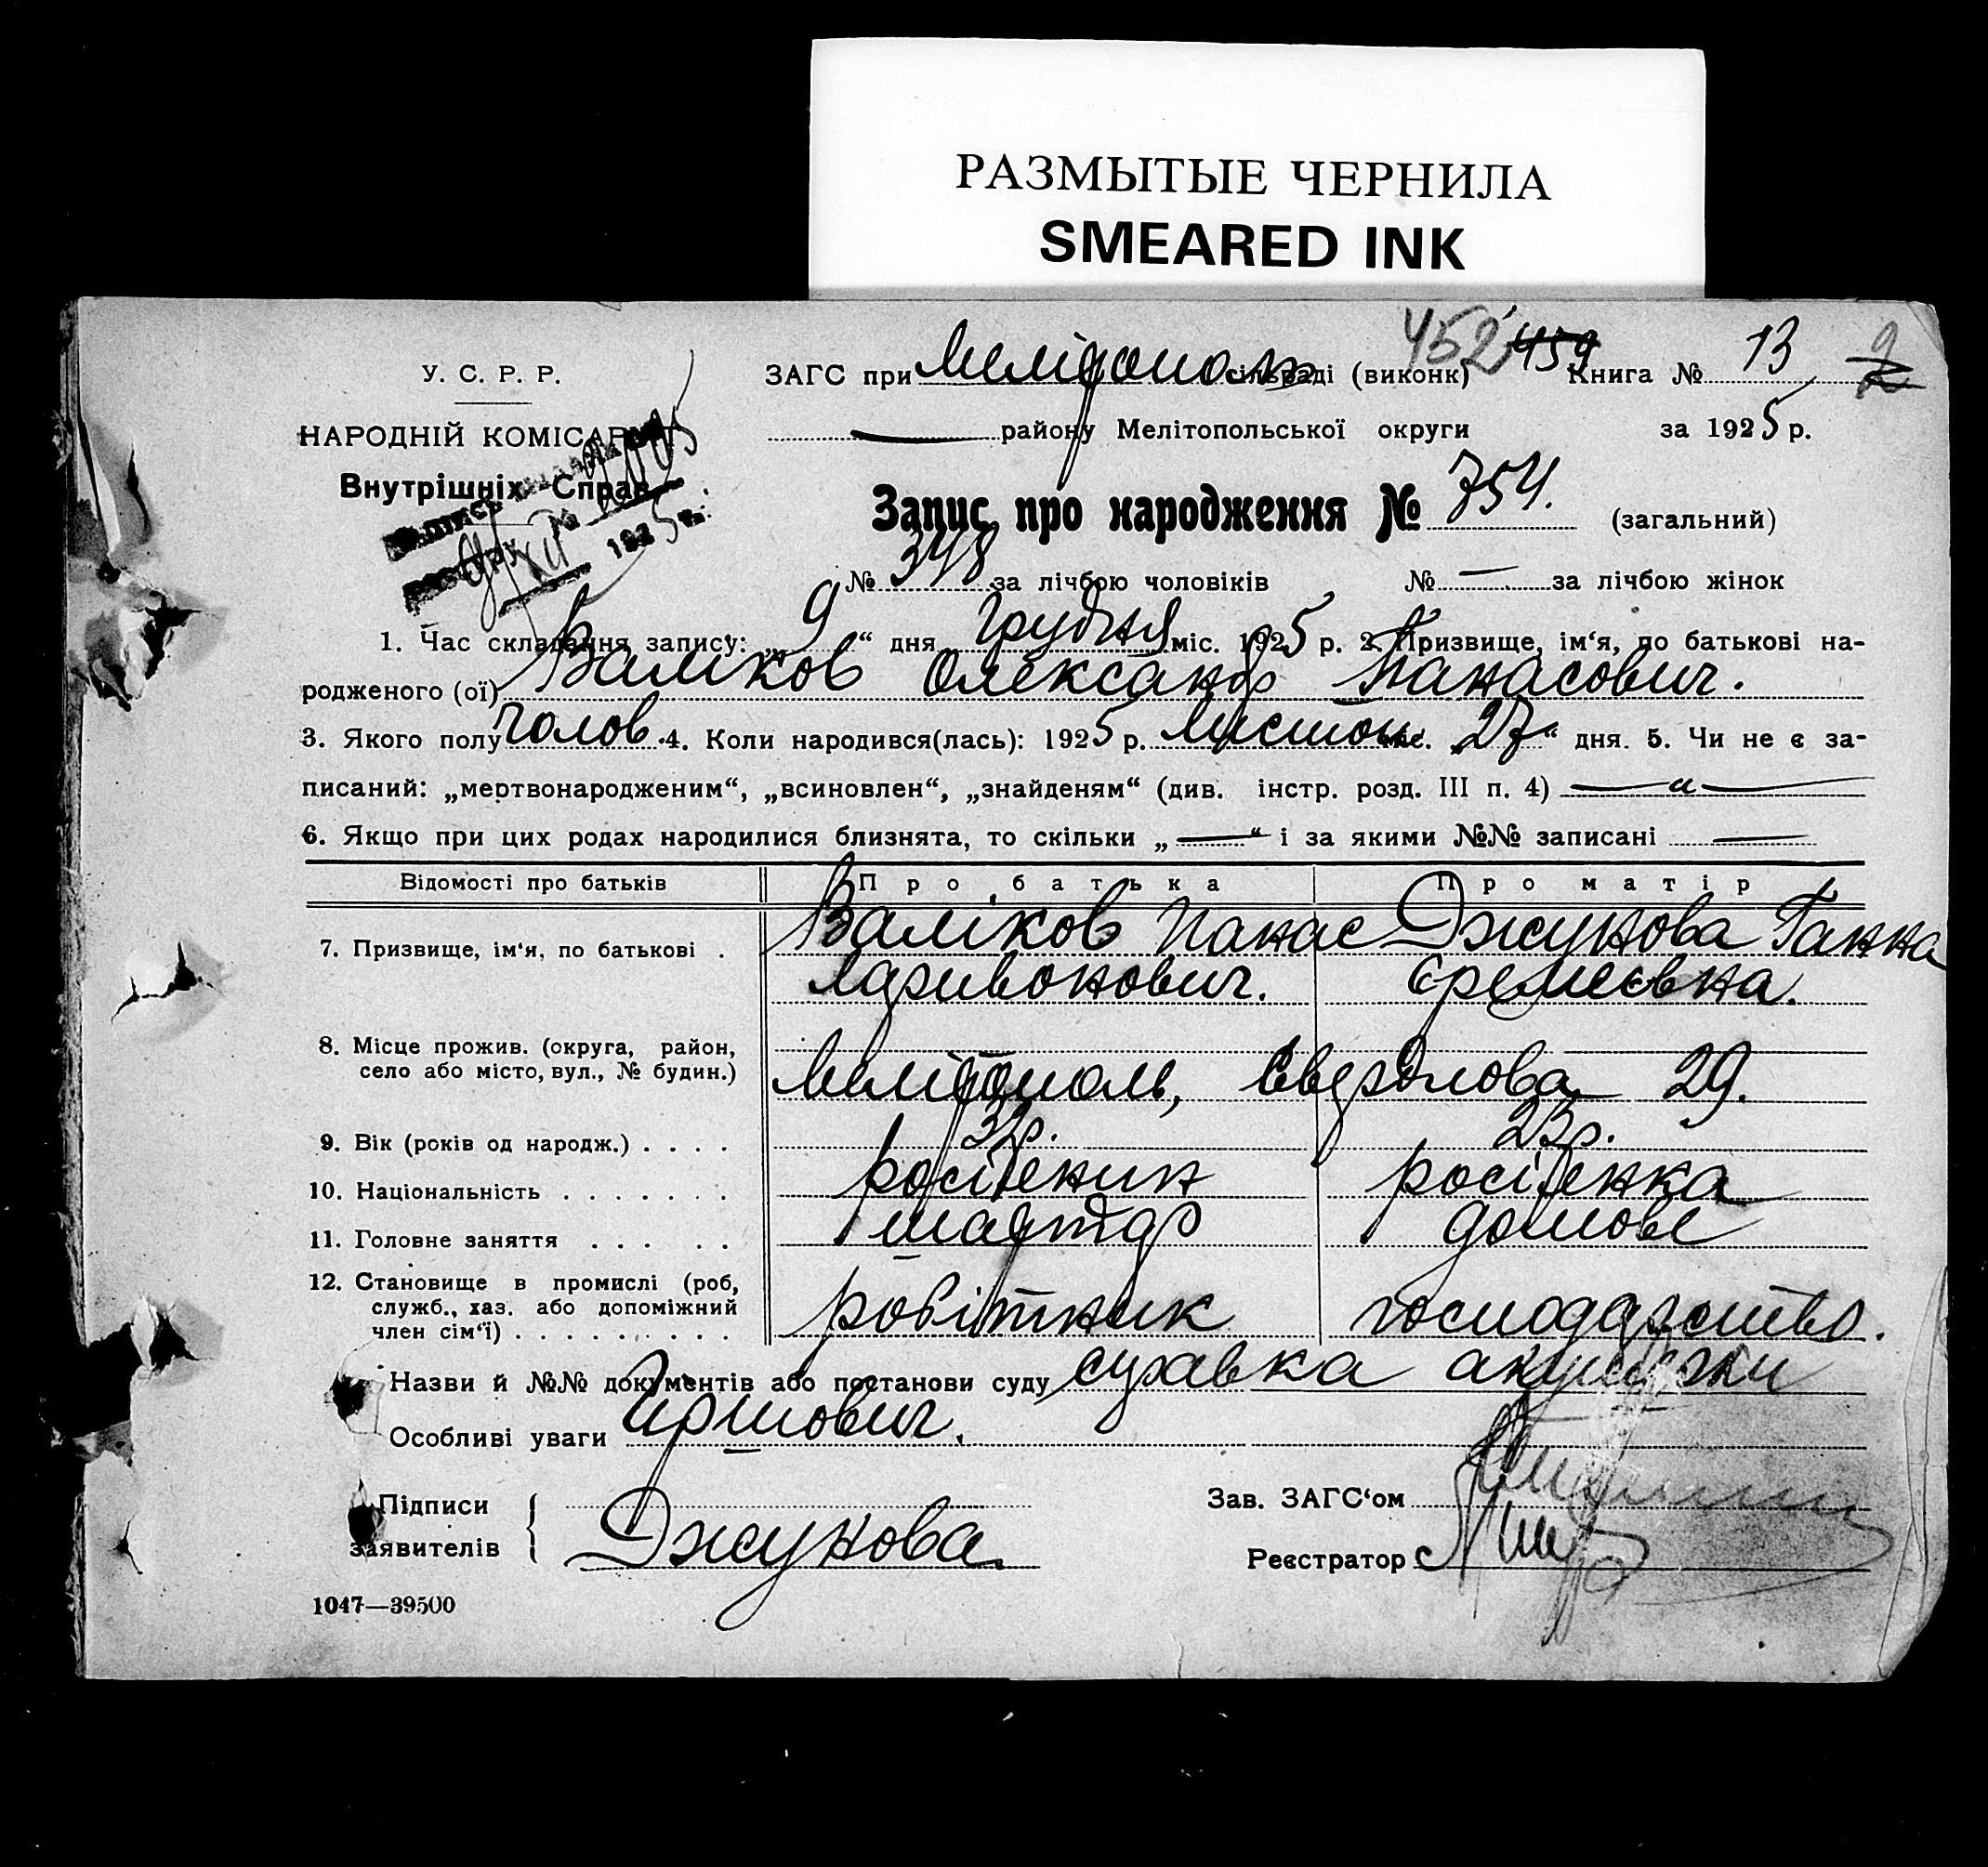 РАЗМЫТЫЕ ЧЕРНИЛА
SMEARED INK
452 459
У. С. Р. Р. ЗАГС при Мелітополь сільраді (виконк) Книга № 13
НАРОДНІЙ КОМІСАРІЯТ району Мелітопольської округи за 1925 р.
Внутрішніх Справ
Запис про народження № 754. (загальний)
1925 р.
№ 348 за лічбою чоловіків № — за лічбою жінок
1. Час складання запису: „9“ дня Грудня міс. 1925 р. 2. Призвище, ім‘я, по батькові на-
родженого (ої) Валіков Олександр Панасович.
3. Якого полу чолов. 4. Коли народився(лась): 1925 р. Листоп. міс. „27“ дня. 5. Чи не є за-
писаний: „мертвонародженим“, „всиновлен“, „знайденям“ (див. інстр. розд. III п. 4) — „ —
6. Якщо при цих родах народилися близнята, то скільки „—“ і за якими №№ записані —
Відомості про батьків Про батька Про матір
7. Призвище, ім‘я, по батькові . Валіков Панас Джукова Ганна
Ларивонович. Єремеєвна.
8. Місце прожив. (округа, район,
село або місто, вул., № будин.) Мелітополь, Свердлова 29.
9. Вік (років од народж.) . . . . 32р. 23р.
10. Національність . . . . . . . росіенин росіенка
11. Головне заняття . . . . . шахтар домове
12. Становище в промислі (роб,
служб., хаз. або допоміжний робітник господарство.
член сім‘ї) . . . . . . . . .
Назви й №№ документів або постанови суду справка акушерки
Особливі уваги Иршович.
Підписи Зав. ЗАГС‘ом
заявителів Джукова Реєстратор
1047—39500